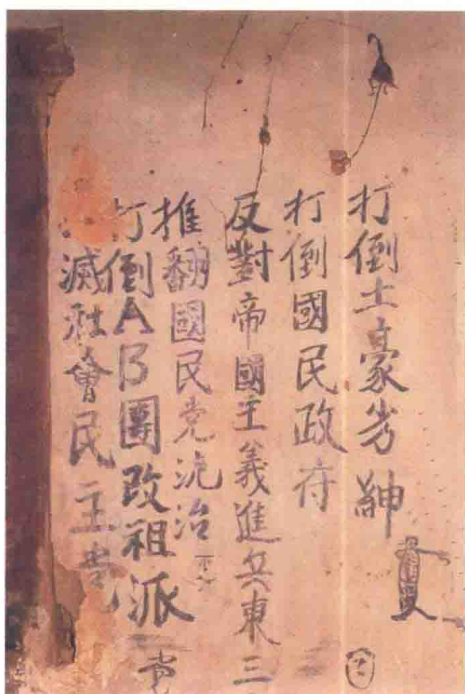 打倒土豪劣紳
打倒國民政府
反對帝國主義進兵東三
推翻國民党统治
打倒AB團改组派
滅社會民主党